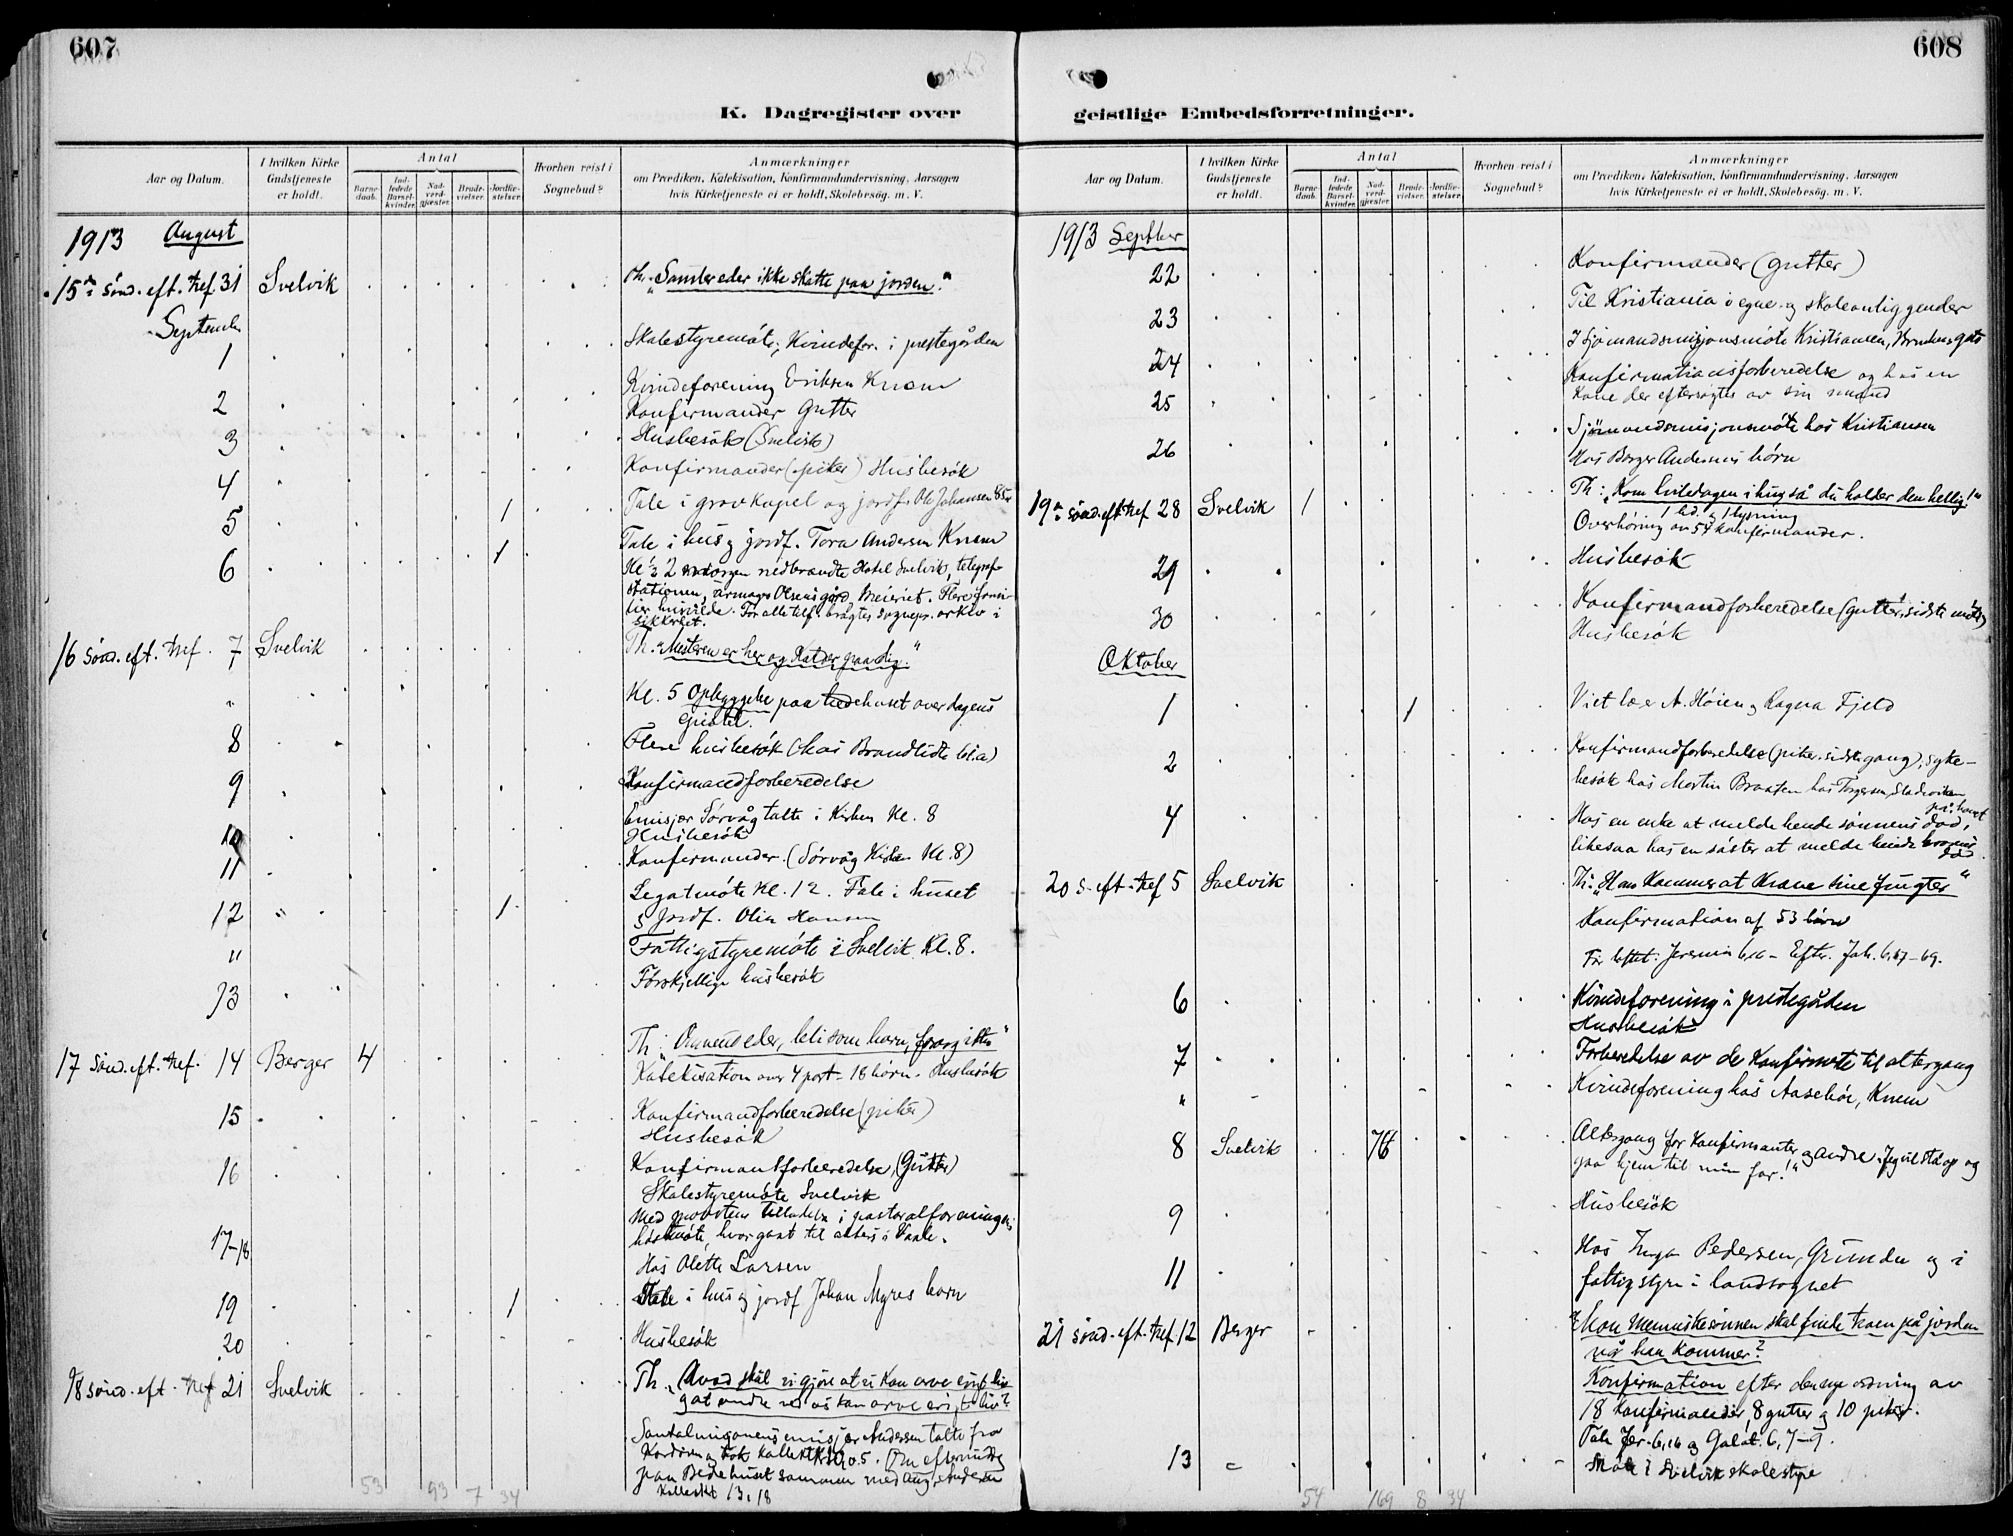 607
K. Dagregister over
Aar og Datum.
I hvilken Kirke Gudstjeneste er holdt.
Antal
Barnedaab.
Indledede Barselkvinder.
Nadverdgjæster.
Brudevielser.
Jordfæstelser.
Hvorhen reist i Sognebud?
Anmærkninger
om Prædiken, Katekisation, Konfirmandundervisning, Aarsagen
hvis Kirketjeneste ei er holdt, Skolebesøg. m. V.
1913 August
15de sönd. eft. tref. 31 Svelvik Th. "Samler eder ikke skatte paa jorden."
September
1 Skolestyremöte; Kvindefor. i prestegården
2 Kvindeforening Eriksen Knem
Konfirmander Gutter
3 Husbesök (Svelvik)
4 Konfirmander (piker) Husbesök
5 1 Tale i gravkapel og jordf. Ole Johansen 85 år
6 1 Tale i hus og jordf. Tora Andersen Knem
Kl. 2 morgen nedbrændte Hotel Svelvik, telegraf-
stationen, Olsens gård, Meieriet. Flere fami-
lier husvilde. For alle tilf. bragtes sognepr. arkiv i
sikkerhet.
16 sönd. eft. tref. 7 Svelvik Th. "Mesteren er her og kalder paa dig."
" Kl. 5 Opbyggelse paa bedehuset over dagens
epistel.
8 Flere husbesök (hos Brandlidte bl.a)
9 Konfirmandforberedelse
10 Emisjær Sörvåg talte i Kirken Kl. 8
Husbesök
11 Konfirmander. (Sörvåg Kirken Kl. 8)
12 " 1 Legatmöte Kl. 12. Tale i huset
og Jordf. Olia Hansen
" Fattigstyremöte i Svelvik Kl. 8.
13 Forskjellige husbesök
17 sönd. eft. tref. 14 Berger 4 Th: "Omvend eder, bli som barn,
Katekisation over 4 part - 18 börn. Husbesök
15 Konfirmandforberedelse (piker)
Husbesök
16 Konfirmantforberedelse, (Gutter)
Skolestyremöte Svelvik
17-18 Med provstens tilladelse i pastoralforeningens
höstmöte, hvor gaat til alters i Vaale.
Hos Olette Larsen
19 1 Tale i hus og jordf Johan Myres barn
20 Husbesök
18 sönd. eft. tref 21 Svelvik Th. "Hvad skal vi gjöre at vi kan arve evigt liv
og at andre ved os kan arve evigt liv?"
Santalmisjonens emisjær Andersen talte fra
Kordören og tok kollekt Kr 30,05. Om eftermiddag
paa Bedehuset sammen med Aug. Andersen
Kollekt 13,18
53 93 7 34
608
geistlige Embedsforretninger.
Aar og Datum.
I hvilken Kirke Gudstjeneste er holdt.
Antal
Barnedaab.
Indledede Barselkvinder.
Nadverdgjæster.
Brudevielser.
Jordfæstelser.
Hvorhen reist i Sognebud?
Anmærkninger
om Prædiken, Katekisation, Konfirmandundervisning, Aarsagen
hvis Kirketjeneste ei er holdt, Skolebesøg. m. V.
1913 Septbr
22 Konfirmander (gutter)
23 Til Kristiania i egne og skoleanliggender
24 I Sjömandsmisjonsmöte Kristiansen,
25 Konfirmationsforberedelse og hos en
Kone der eftersögtes av sin mand
26 Sjömandsmisjonsmöte hos Kristiansen
Hos Borger Andersens börn
19de sönd. eft tref 28 Svelvik 1 Th: "Kom hviledagen ihug så du holder den hellig!"
1 bd. og 1 lysning
Overhöring av 54 konfirmander.
29 Husbesök
30 Konfirmandforberedelse (gutter, sidste möte)
Husbesök
Oktober
1 1 Viet A. Höien og Ragna Fjeld
2 Konfirmandforberedelse (piker. sidste gang), syke-
besök hos Martin Braaten hos Torgersen,
4 Hos en enke at melde hende sönnens död, på havet
likesaa hos en söster at melde hende brorens
död
20 s. eft. tref 5 Svelvik Th: "Han kommer at kræve sine frugter"
Konfirmation af 53 börn
För löftet: Jeremia 6,16 - Efter. Joh. 6,67-69.
6 Kvindeforening i prestegården
Husbesök
7 Forberedelse av de konfirmerte til altergang
" Kvindeforening hos Aaseböe, Knem
8 Svelvik 76 Altergang for konfirmanter og andre. "Jeg vil stå op og
gaa hjem til min far!"
9 Husbesök
11 Hos Inga Pedersen, Grunden og i
fattigstyre i landsognet
21 sönd. eft. tref. 12 Berger "Mon Menneskesönnen skal finde troen på jorden
når han kommer?
Konfirmation efter den nye ordning av
18 konfirmander, 8 gutter og 10 piker.
Tale Jer. 6,16 og Galat. 6, 7-9.
13 " Möte i Svelvik skolestyre
54 169 8 34